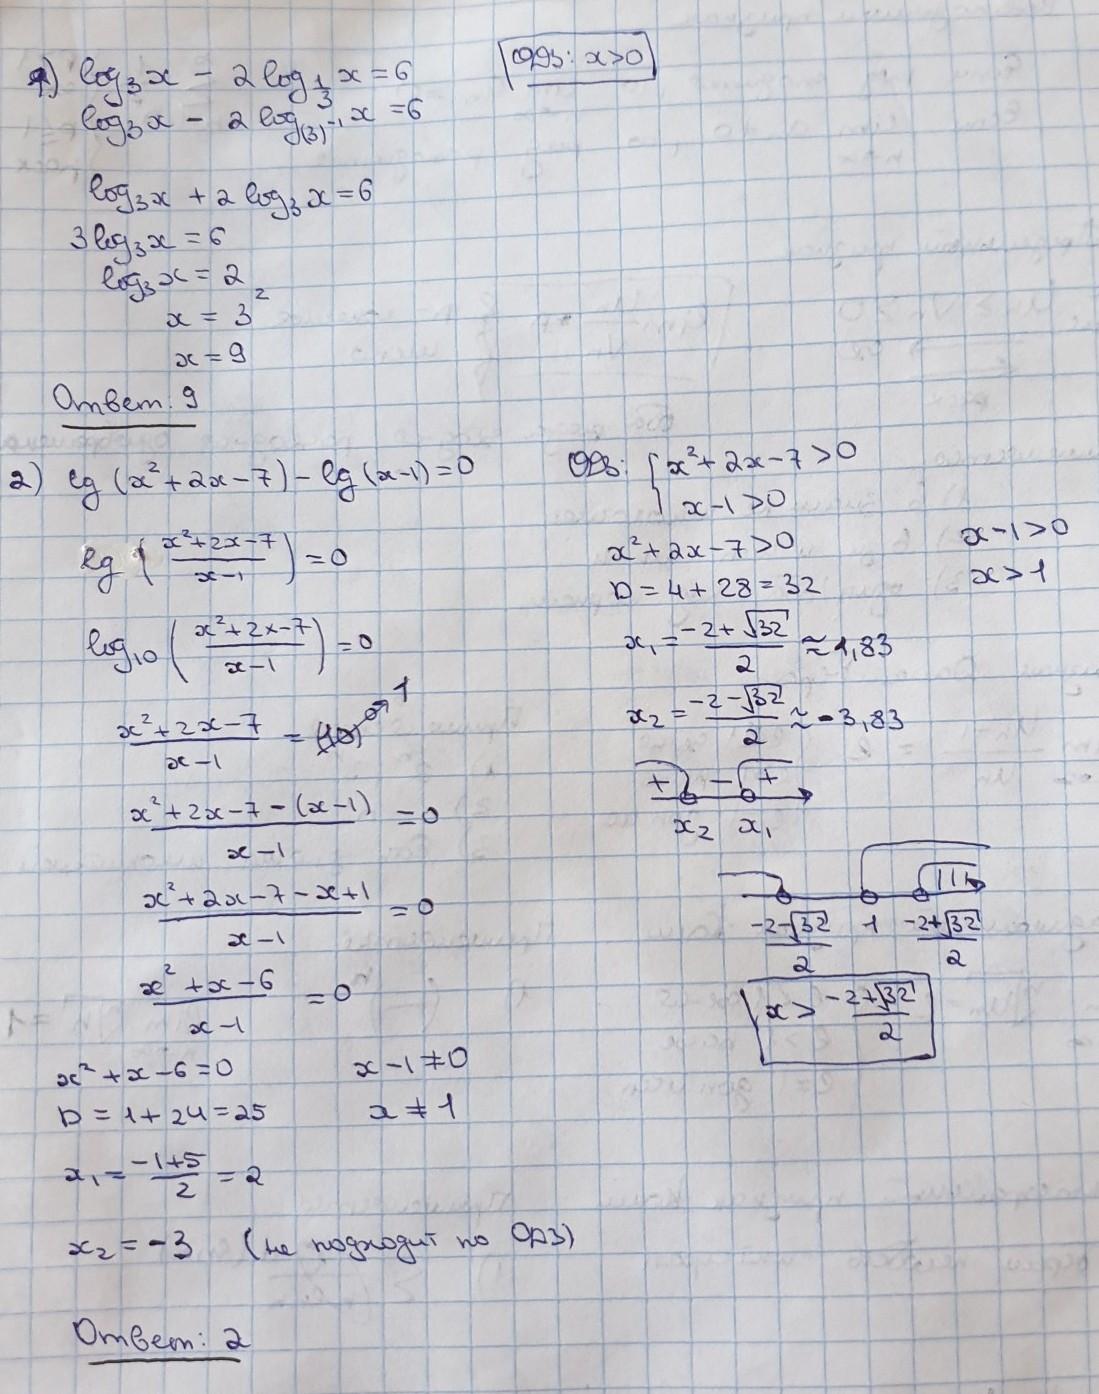 1) log₃x − 2log_{1/3} x = 6
ОДЗ: x>0
log₃x − 2log_{(3)⁻¹} x = 6
log₃x + 2log₃x = 6
3log₃x = 6
log₃x = 2
x = 3²
x = 9
Ответ: 9
2) lg(x²+2x−7) − lg(x−1) = 0
lg((x²+2x−7)/(x−1)) = 0
log₁₀((x²+2x−7)/(x−1)) = 0
(x²+2x−7)/(x−1) = (10)⁰ → 1
(x²+2x−7−(x−1))/(x−1) = 0
(x²+2x−7−x+1)/(x−1) = 0
(x²+x−6)/(x−1) = 0
x²+x−6=0
x−1≠0
D = 1+24=25
x≠1
x₁ = (−1+5)/2 = 2
x₂ = −3 (не подходит по ОДЗ)
Ответ: 2
ОДЗ: { x²+2x−7>0
x−1>0
x²+2x−7>0
x−1>0
D = 4+28=32
x>1
x₁ = (−2+√32)/2 ≈ 1,83
x₂ = (−2−√32)/2 ≈ −3,83
+ − +
x₂ x₁
(−2−√32)/2 1 (−2+√32)/2
x > (−2+√32)/2